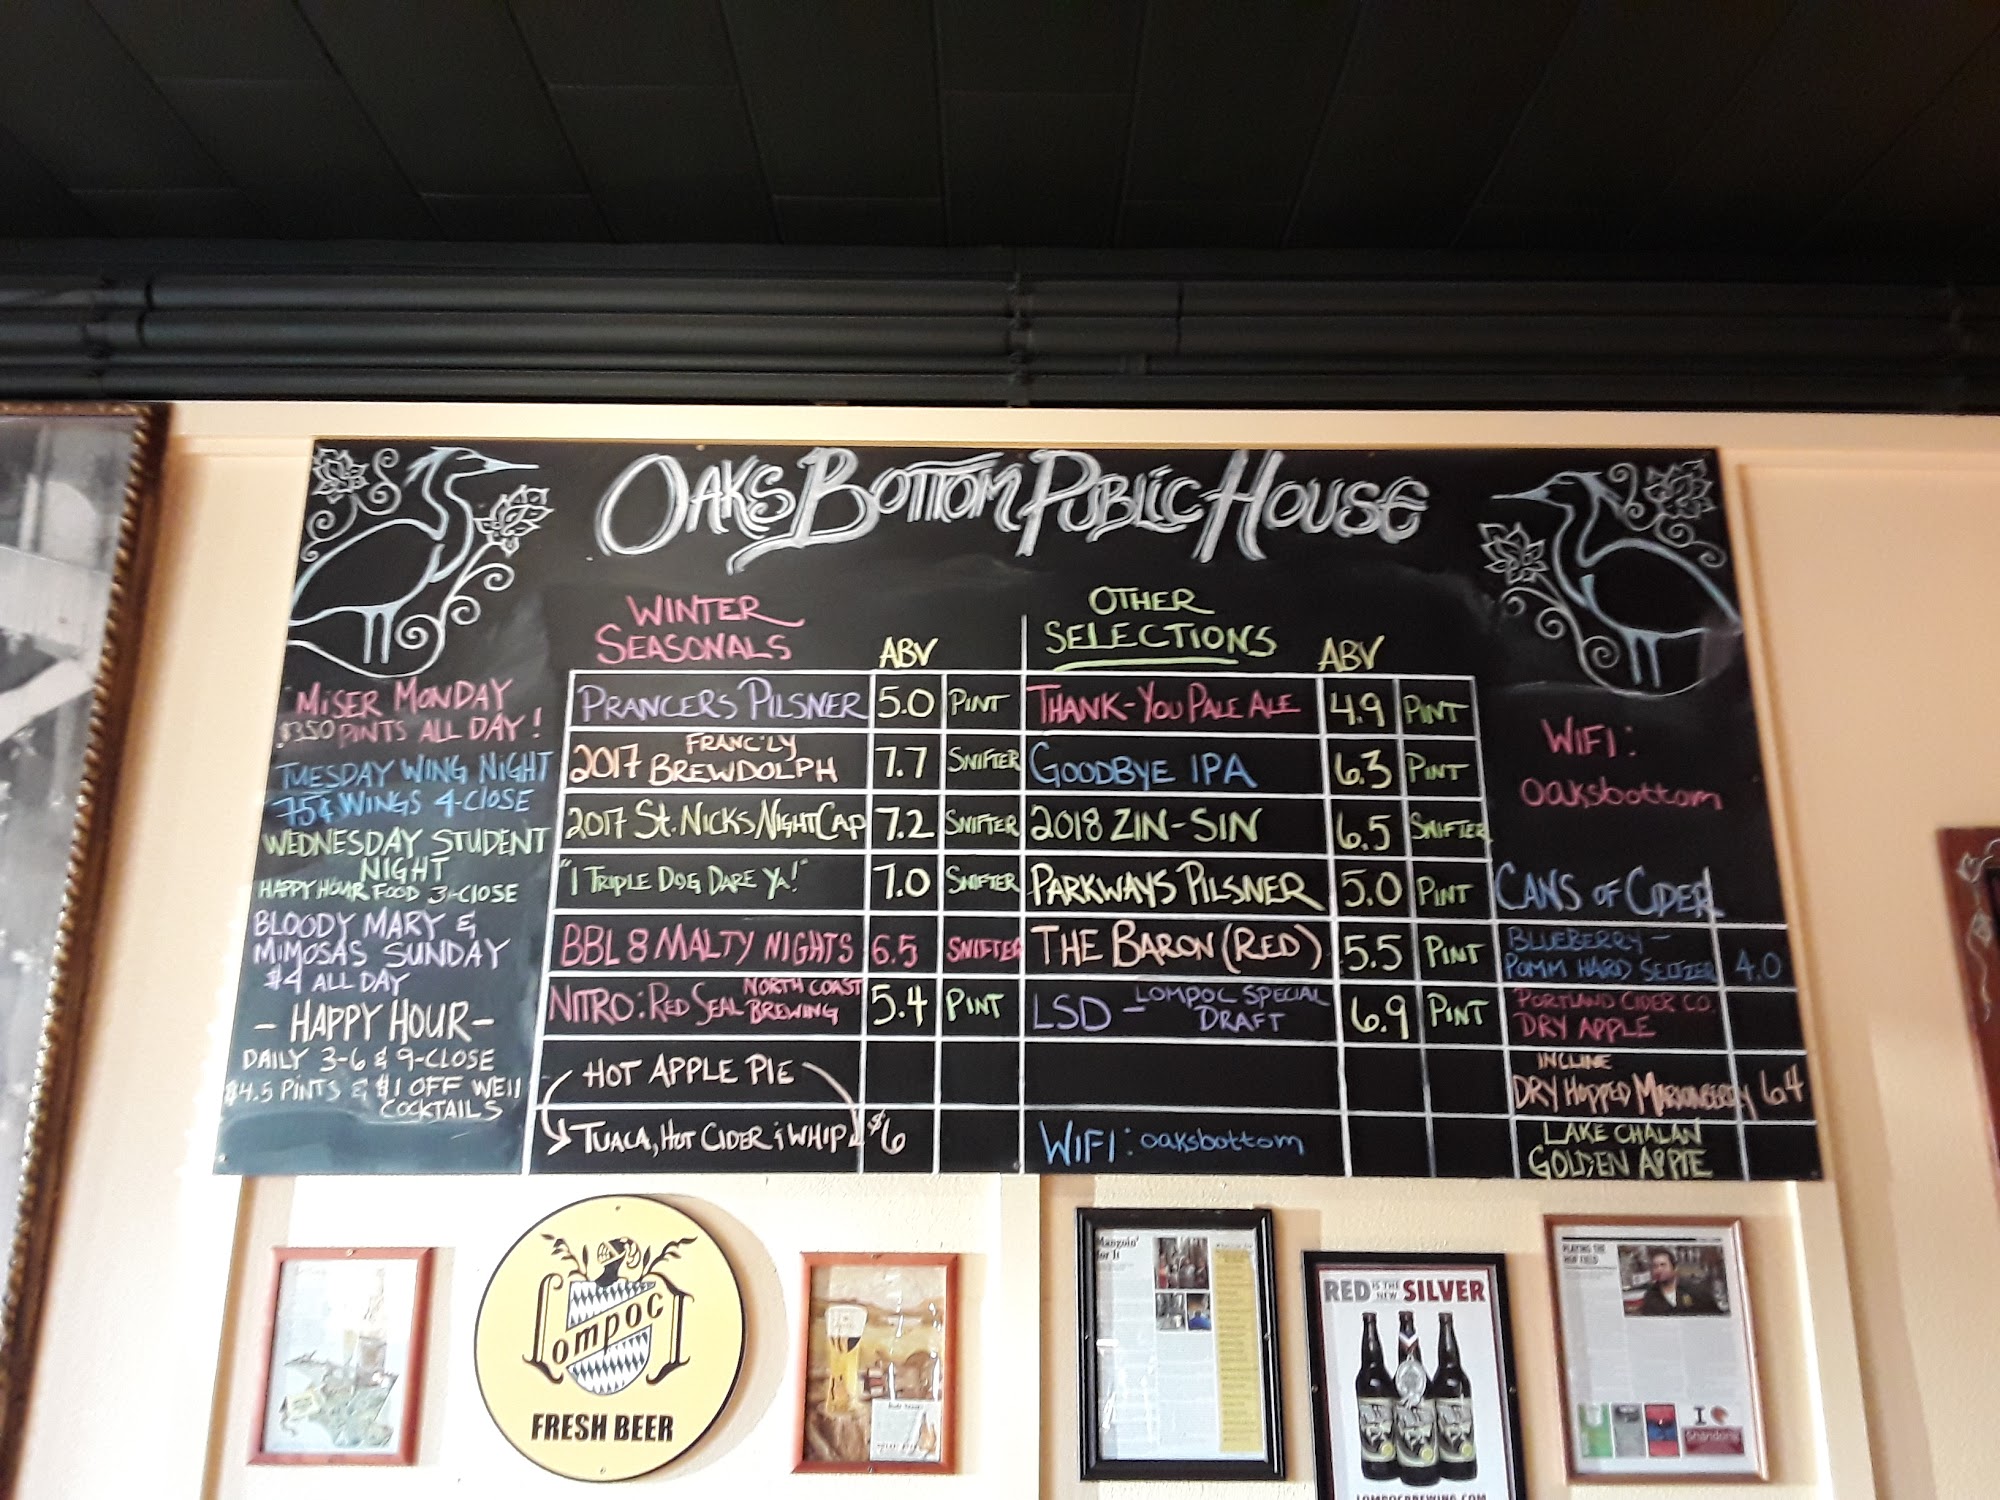 OAKS BOTTOM PUBLIC HOUSE
MISER MONDAY
$350 PINTS ALL DAY!
TUESDAY WING NIGHT
75¢ WINGS 4-CLOSE
WEDNESDAY STUDENT
NIGHT
HAPPY HOUR FOOD 3-CLOSE
BLOODY MARY &
MIMOSAS SUNDAY
$4 ALL DAY
- HAPPY HOUR -
DAILY 3-6 & 9-CLOSE
$4.5 PINTS & $1 OFF WELL
COCKTAILS
WINTER
SEASONALS ABV
PRANCER'S PILSNER 5.0 PINT
2017 FRANC'LY BREWDOLPH 7.7 SNIFTER
2017 ST. NICKS NIGHTCAP 7.2 SNIFTER
"I TRIPLE DOG DARE YA!" 7.0 SNIFTER
BBL 8 MALTY NIGHTS 6.5 SNIFTER
NITRO: RED SEAL NORTH COAST BREWING 5.4 PINT
HOT APPLE PIE
TUACA, HOT CIDER & WHIP $6
OTHER
SELECTIONS ABV
THANK-YOU PALE ALE 4.9 PINT
GOODBYE IPA 6.3 PINT
2018 ZIN-SIN 6.5 SNIFTER
PARKWAYS PILSNER 5.0 PINT
THE BARON (RED) 5.5 PINT
LSD - LOMPOC SPECIAL DRAFT 6.9 PINT
WIFI: oaksbottom
WIFI:
oaksbottom
CANS OF CIDER
BLUEBERRY-
POMM HARD SELTZER 4.0
PORTLAND CIDER CO.
DRY APPLE
INCLINE
DRY HOPPED MARIONBERRY 6.4
LAKE CHALAN
GOLDEN APPLE
Lompoc
FRESH BEER
Mangoin'
for It
RED IS THE NEW SILVER
LOMPOCBREWING.COM
PLAYING THE
HOP FIELD
I